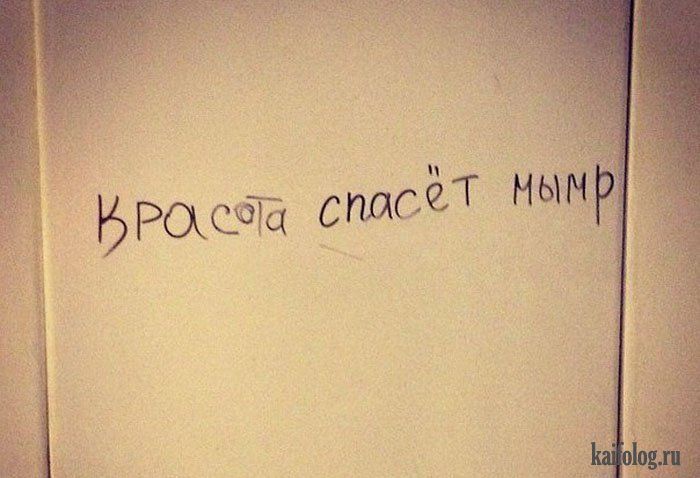 Красота спасёт мымр
kaifolog.ru